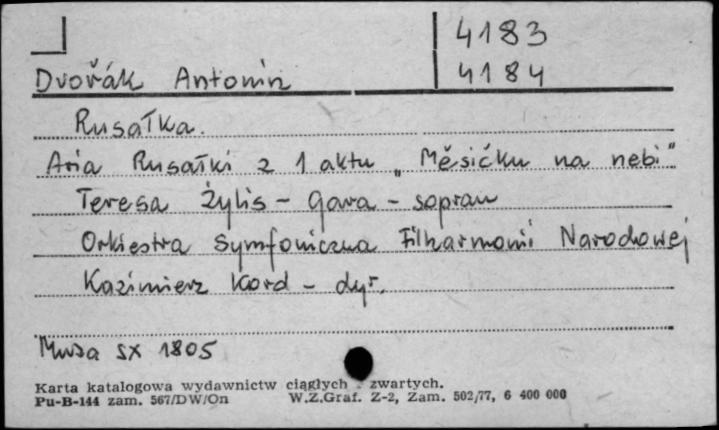 4183
Dvořák Antonin 4184
Rusałka.
Aria Rusałki z 1 aktu „Měsičku na nebi"
Teresa Żylis - Gara - sopran
Orkiestra Symfoniczna Filharmonii Narodowej
Kazimierz Kord - dyr.
Muza SX 1805
Karta katalogowa wydawnictw ciągłych - zwartych.
Pu-B-144 zam. 567/DW/On W.Z.Graf. Z-2, Zam. 502/77, 6 400 000